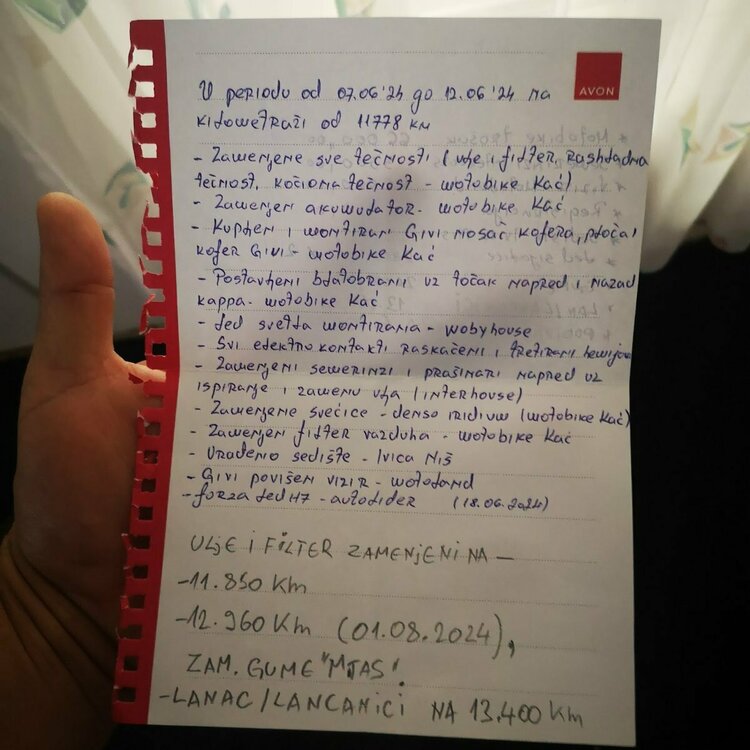 AVON
U periodu od 07.06'24 do 12.06'24 na
kilometraži od 11778 km
- Zamenjene sve tečnosti (ulje i filter, rashladna
tečnost, kočiona tečnost - motobike Kać)
- Zamenjen akumulator - motobike Kać
- Kupljen i montiran GIVI nosač kofera, ploča i
kofer GIVI - motobike Kać
- Postavljeni blatobrani uz točak napred i nazad
kappa - motobike Kać
- Led svetla montirana - wobyhouse
- Svi elektrokontakti raskačeni i tretirani hemijom
- Zamenjeni semerinzi i prašinari napred uz
ispiranje i zamenu ulja (interhouse)
- Zamenjene svećice - denso iridium (motobike Kać)
- Zamenjen filter vazduha - motobike Kać
- Urađeno sedište - Ivica Niš
- GIVI povišen vizir - motoland
- forza led H7 - autolider (18.06.2024)
ULJE I FILTER ZAMENJENI NA —
-11.850 Km
-12.960 Km (01.08.2024),
ZAM. GUME "MITAS".
-LANAC/LANCANICI NA 13.400 Km